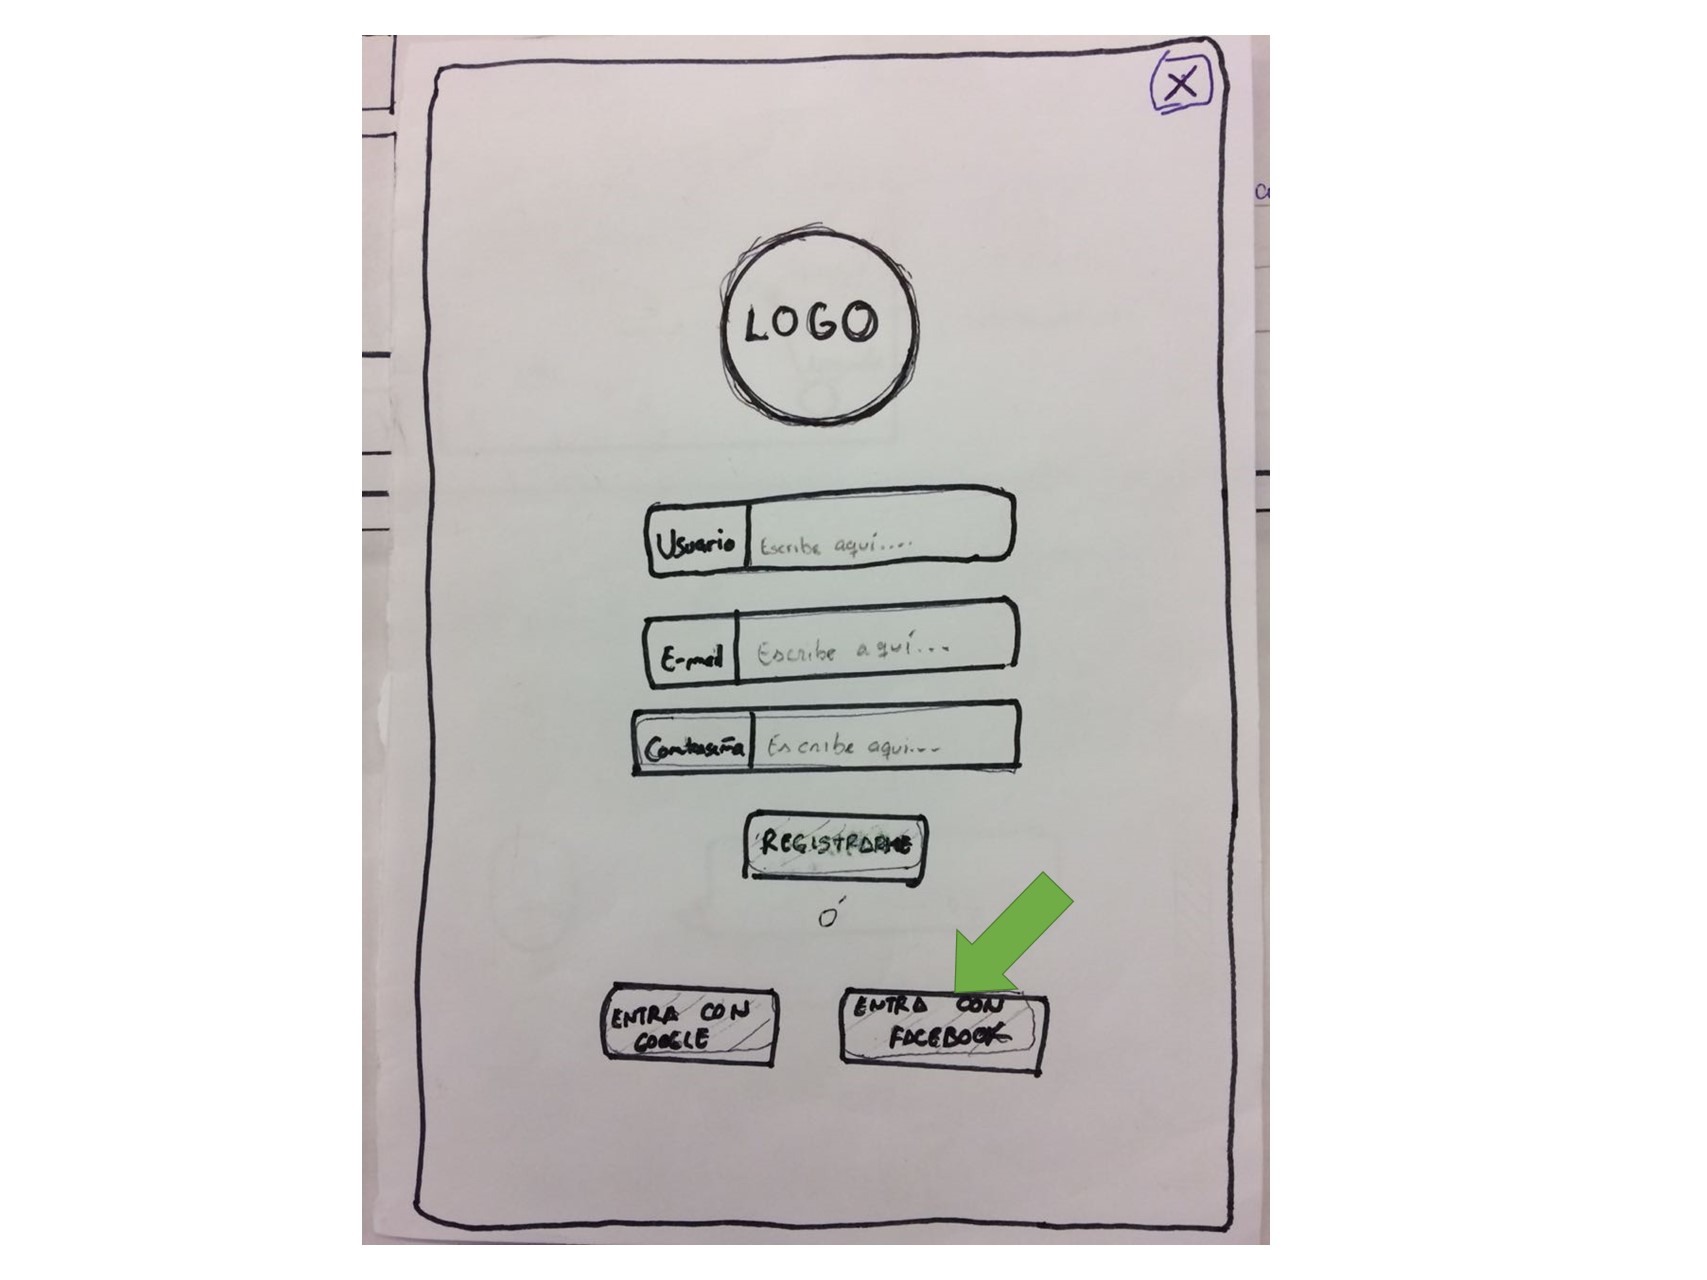 X
LOGO
Usuario Escribe aquí....
E-mail Escribe aquí...
Contraseña Escribe aqui...
REGISTRARME
Ó
ENTRA CON
GOOGLE
ENTRA CON
FACEBOOK